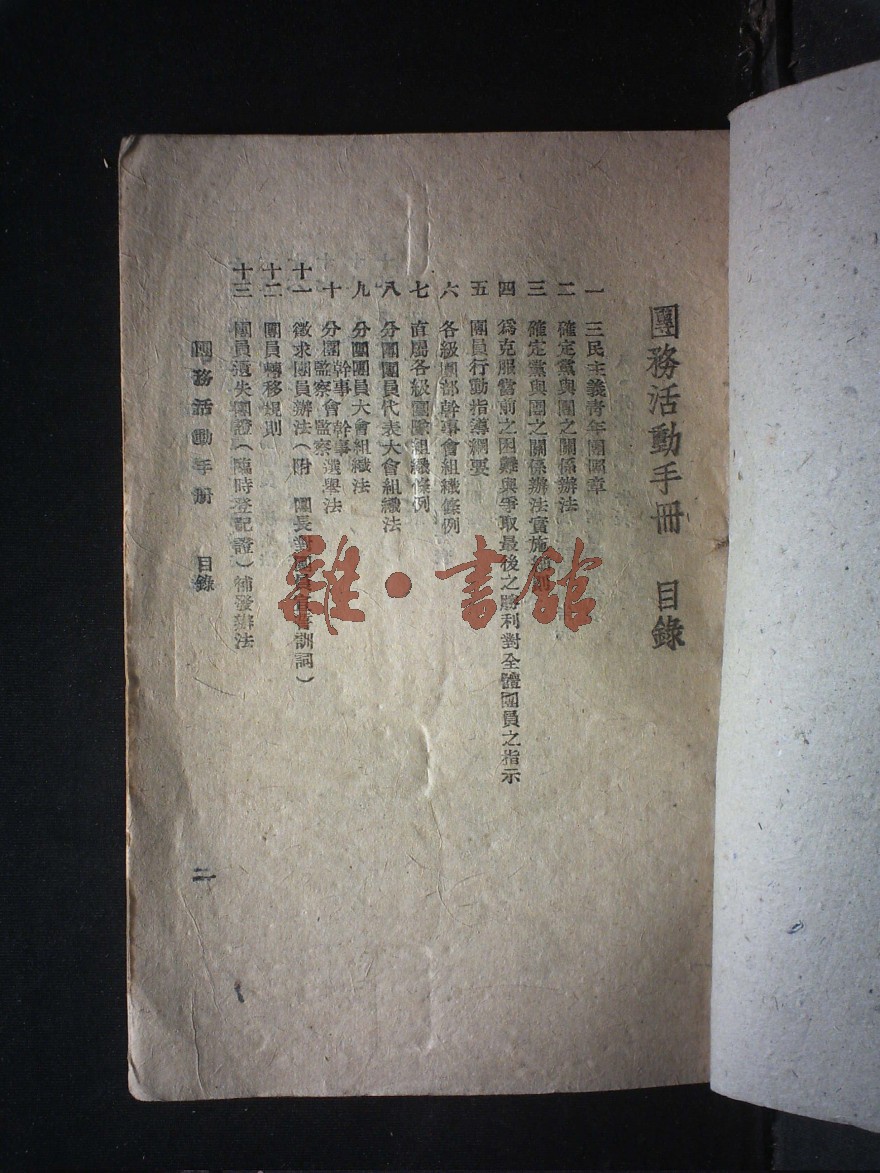 團務活動手冊 目錄
一 三民主義青年團團章
二 確定黨與團之關係辦法
三 確定黨與團之關係辦法實施細則
四 爲克服當前之困難與爭取最後之勝利對全體團員之指示
五 團員行動指導綱要
六 各級團部幹事會組織條例
七 直屬各級團隊組織條例
八 分團團員代表大會組織法
九 分團團員大會組織法
十 分團幹事會幹事監察會監察選舉法
十一 徵求團員辦法(附 團長對團員宣誓訓詞)
十二 團員轉移規則
十三 團員遺失團證(臨時登記證)補發辦法
團務活動手册 目錄
二
雜·書館